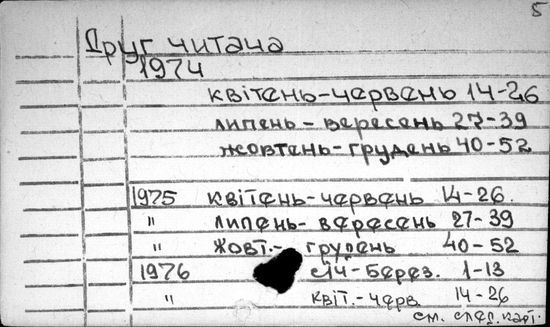 5
Друг читача
1974
квітень-червень 14-26
липень-вересень 27-39
жовтень-грудень 40-52
1975 квітень-червень 14-26.
" липень-вересень 27-39
" жовт.- грудень 40-52
1976 січ-берез. 1-13
" квіт.-черв. 14-26
см. след. карт.